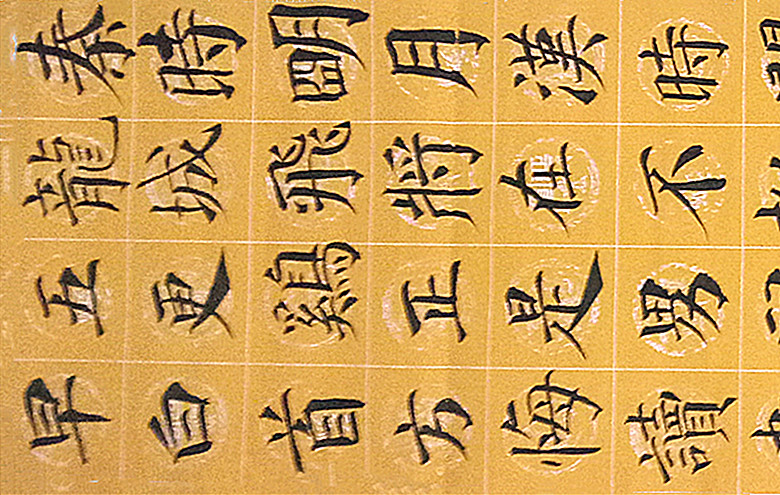 秦時朙月漢時
龍城飛將在不
五更雞正是男
早白首方悔讀